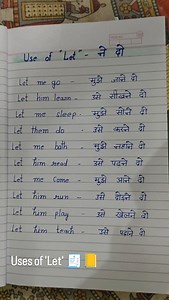 Use of "Let" - ने दो
Let me go - मुझे जाने दो
Let him learn - उसे सीखने दो
Let me sleep - मुझे सोने दो
Let them do - उसे करने दो
Let me bath - मुझे नहाने दो
Let him read - उसे पढ़ने दो
Let me come - मुझे आने दो
Let him run - उसे दौडने दो
Let him play - उसे खेलने दो
Let him teach - उसे पढाने दो
Uses of 'Let'